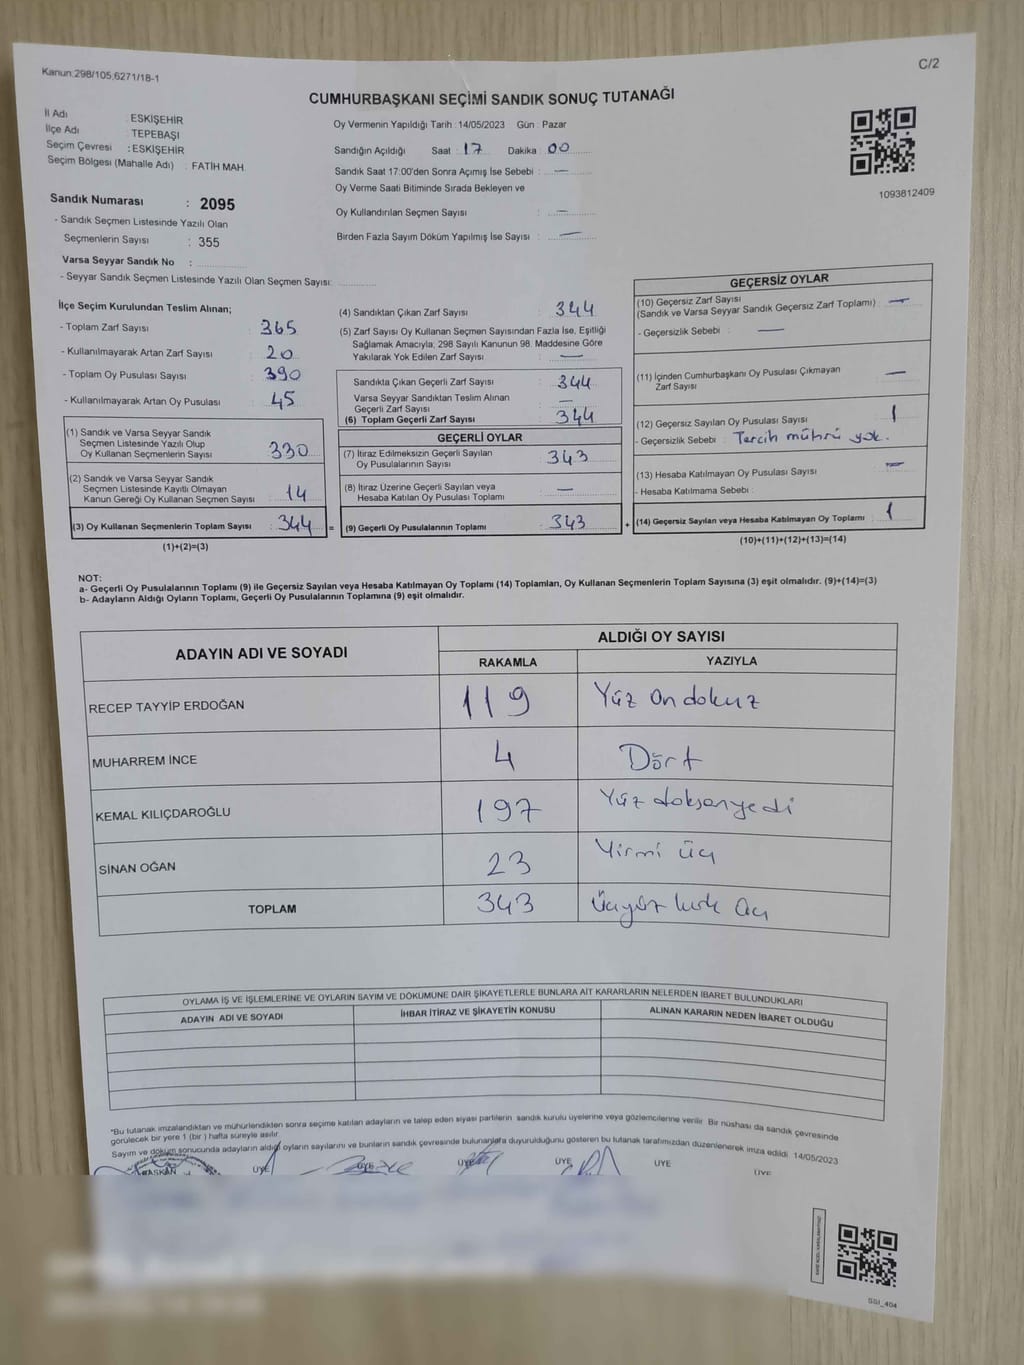 Kanun:298/105,6271/18-1
C/2
CUMHURBAŞKANI SEÇİMİ SANDIK SONUÇ TUTANAĞI
İl Adı : ESKİŞEHİR
İlçe Adı : TEPEBAŞI
Seçim Çevresi : ESKİŞEHİR
Seçim Bölgesi (Mahalle Adı) : FATİH MAH.
Oy Vermenin Yapıldığı Tarih : 14/05/2023 Gün : Pazar
Sandığın Açıldığı Saat : 17 Dakika : 00
Sandık Saat 17:00'den Sonra Açımış İse Sebebi : —
Oy Verme Saati Bitiminde Sırada Bekleyen ve
Oy Kullandırılan Seçmen Sayısı : —
Birden Fazla Sayım Döküm Yapılmış İse Sayısı : —
1093812409
Sandık Numarası : 2095
- Sandık Seçmen Listesinde Yazılı Olan
Seçmenlerin Sayısı : 355
Varsa Seyyar Sandık No :
- Seyyar Sandık Seçmen Listesinde Yazılı Olan Seçmen Sayısı:
İlçe Seçim Kurulundan Teslim Alınan;
- Toplam Zarf Sayısı : 365
- Kullanılmayarak Artan Zarf Sayısı : 20
- Toplam Oy Pusulası Sayısı : 390
- Kullanılmayarak Artan Oy Pusulası : 45
(1) Sandık ve Varsa Seyyar Sandık
Seçmen Listesinde Yazılı Olup
Oy Kullanan Seçmenlerin Sayısı : 330
(2) Sandık ve Varsa Seyyar Sandık
Seçmen Listesinde Kayıtlı Olmayan
Kanun Gereği Oy Kullanan Seçmen Sayısı : 14
(3) Oy Kullanan Seçmenlerin Toplam Sayısı : 344 =
(1)+(2)=(3)
(4) Sandıktan Çıkan Zarf Sayısı : 344
(5) Zarf Sayısı Oy Kullanan Seçmen Sayısından Fazla İse, Eşitliği
Sağlamak Amacıyla; 298 Sayılı Kanunun 98. Maddesine Göre
Yakılarak Yok Edilen Zarf Sayısı : —
Sandıkta Çıkan Geçerli Zarf Sayısı : 344
Varsa Seyyar Sandıktan Teslim Alınan
Geçerli Zarf Sayısı : —
(6) Toplam Geçerli Zarf Sayısı : 344
GEÇERLİ OYLAR
(7) İtiraz Edilmeksizin Geçerli Sayılan
Oy Pusulalarının Sayısı : 343
(8) İtiraz Üzerine Geçerli Sayılan veya
Hesaba Katılan Oy Pusulası Toplamı : —
(9) Geçerli Oy Pusulalarının Toplamı : 343 +
GEÇERSİZ OYLAR
(10) Geçersiz Zarf Sayısı
(Sandık ve Varsa Seyyar Sandık Geçersiz Zarf Toplamı) : —
- Geçersizlik Sebebi : —
(11) İçinden Cumhurbaşkanı Oy Pusulası Çıkmayan
Zarf Sayısı : —
(12) Geçersiz Sayılan Oy Pusulası Sayısı : 1
- Geçersizlik Sebebi : Tercih mührü yok.
(13) Hesaba Katılmayan Oy Pusulası Sayısı : —
- Hesaba Katılmama Sebebi :
(14) Geçersiz Sayılan veya Hesaba Katılmayan Oy Toplamı : 1
(10)+(11)+(12)+(13)=(14)
NOT:
a- Geçerli Oy Pusulalarının Toplamı (9) ile Geçersiz Sayılan veya Hesaba Katılmayan Oy Toplamı (14) Toplamları, Oy Kullanan Seçmenlerin Toplam Sayısına (3) eşit olmalıdır. (9)+(14)=(3)
b- Adayların Aldığı Oyların Toplamı, Geçerli Oy Pusulalarının Toplamına (9) eşit olmalıdır.
ADAYIN ADI VE SOYADI ALDIĞI OY SAYISI
RAKAMLA YAZIYLA
RECEP TAYYİP ERDOĞAN 119 Yüz on dokuz
MUHARREM İNCE 4 Dört
KEMAL KILIÇDAROĞLU 197 Yüz doksanyedi
SİNAN OĞAN 23 Yirmi üç
TOPLAM 343 Üçyüz kırk üç
OYLAMA İŞ VE İŞLEMLERİNE VE OYLARIN SAYIM VE DÖKÜMÜNE DAİR ŞİKAYETLERLE BUNLARA AİT KARARLARIN NELERDEN İBARET BULUNDUKLARI
ADAYIN ADI VE SOYADI İHBAR İTİRAZ VE ŞİKAYETİN KONUSU ALINAN KARARIN NEDEN İBARET OLDUĞU
*Bu tutanak imzalandıktan ve mühürlendikten sonra seçime katılan adayların ve talep eden siyasi partilerin sandık kurulu üyelerine veya gözlemcilerine verilir. Bir nüshası da sandık çevresinde
görülecek bir yere 1 (bir) hafta süreyle asılır.
Sayım ve döküm sonucunda adayların aldığı oyların sayılarını ve bunların sandık çevresinde bulunanlara duyurulduğunu gösteren bu tutanak tarafımızdan düzenlenerek imza edildi. 14/05/2023
BAŞKAN ÜYE ÜYE ÜYE ÜYE ÜYE ÜYE